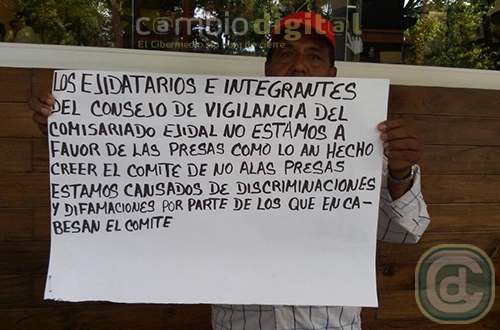 cambiodigital
El Cibermedio
LOS EJIDATARIOS E INTEGRANTES
DEL CONSEJO DE VIGILANCIA DEL
COMISARIADO EJIDAL NO ESTAMOS A
FAVOR DE LAS PRESAS COMO LO AN HECHO
CREER EL COMITE DE NO ALAS PRESAS
ESTAMOS CANSADOS DE DISCRIMINACIONES
Y DIFAMACIONES POR PARTE DE LOS QUE ENCA-
BESAN EL COMITE